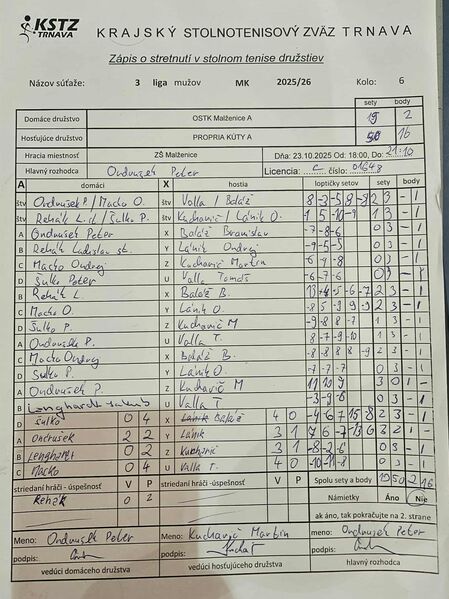 KSTZ TRNAVA KRAJSKÝ STOLNOTENISOVÝ ZVÄZ TRNAVA
Zápis o stretnutí v stolnom tenise družstiev
Názov súťaže: 3 liga mužov MK 2025/26 Kolo: 6
sety body
Domáce družstvo OSTK Malženice A 19 2
Hosťujúce družstvo PROPRIA KÚTY A 50 16
Hracia miestnosť ZŠ Malženice Dňa: 23.10.2025 Od: 18:00, Do: 21:10
Hlavný rozhodca Ondrušek Peter Licencia: C číslo: 01648
A domáci X hostia loptičky setov sety body
štv Ondrušek P. / Macho O. štv Valla / Baláž 8 -3 -5 8 -9 2 3 - 1
štv Rehák L. st / Šulko P. štv Kuchavič / Lánik O. 1 3 - 1
A Ondrušek Peter X Baláž Branislav -7 -8 -6 0 3 - 1
B Rehák Ladislav st. Y Lánik Ondrej -9 -5 -5 0 3 - 1
C Macho Ondrej Z Kuchavič Martin -6 -9 -8 0 3 - 1
D Šulko Peter U Valla Tomáš -6 -7 -6 0 3 - 1
B Rehák L. X Baláž B. 2 3 - 1
C Macho O. Y Lánik O. 2 3 - 1
D Šulko P. Z Kuchavič M -9 8 -8 -7 1 3 - 1
A Ondrušek P. U Valla T. 8 -7 -9 -10 1 3 - 1
C Macho Ondrej X Baláž B. 2 3 - 1
D Šulko P. Y Lánik O. -7 -7 -7 0 3 - 1
A Ondrušek P. Z Kuchavič M 11 10 9 3 0 1 -
B Lenghardt U Valla T -3 -9 -6 0 3 - 1
D Šulko 0 4 X Baláž 4 0
A Ondrušek 2 2 Y Lánik 3 1
B Lenghardt 0 2 Z Kuchavič 3 1 -8 -2 -6 0 3 - 1
C Macho 0 4 U Valla T. 4 0 -10 -11 -8 0 3 - 1
striedaní hráči - úspešnosť V P striedaní hráči - úspešnosť V P Spolu sety a body 19 50 2 16
Rehák 0 2 Námietky Áno Nie
ak áno, tak pokračujte na 2. strane
Meno: Ondrušek Peter Meno: Kuchavič Martin Meno: Ondrušek Peter
podpis: podpis: podpis:
vedúci domáceho družstva vedúci hosťujúceho družstva hlavný rozhodca